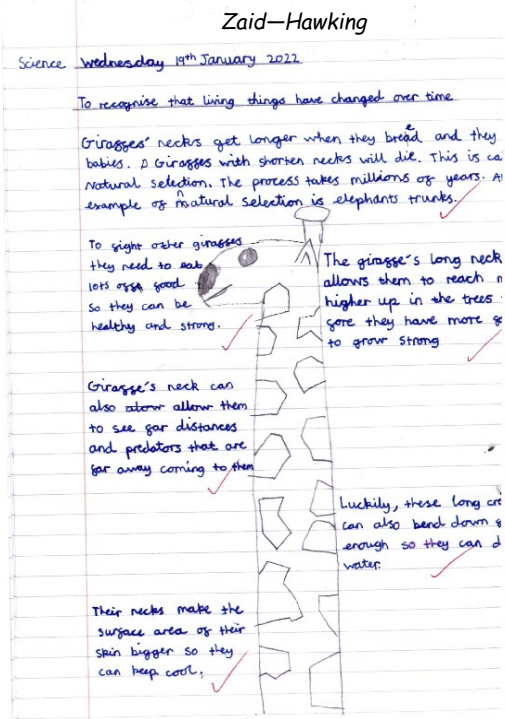 Zaid—Hawking
Science Wednesday 19th January 2022
To recognise that living things have changed over time
Giraffes' necks get longer when they breed and they
babies. Giraffes with shorten necks will die. This is ca
Natural selection. The process takes millions of years. A
example of natural selection is elephants trunks.
To fight other giraffes
they need to eat
lots off food
so they can be
healthy and strong.
The giraffe's long neck
allows them to reach
higher up in the trees
fore they have more
to grow strong
Giraffe's neck can
also allow them
to see far distances
and predators that are
far away coming to them
Luckily, these long cre
can also bend down
enough so they can d
water.
Their necks make the
surface area of their
skin bigger so they
can keep cool.